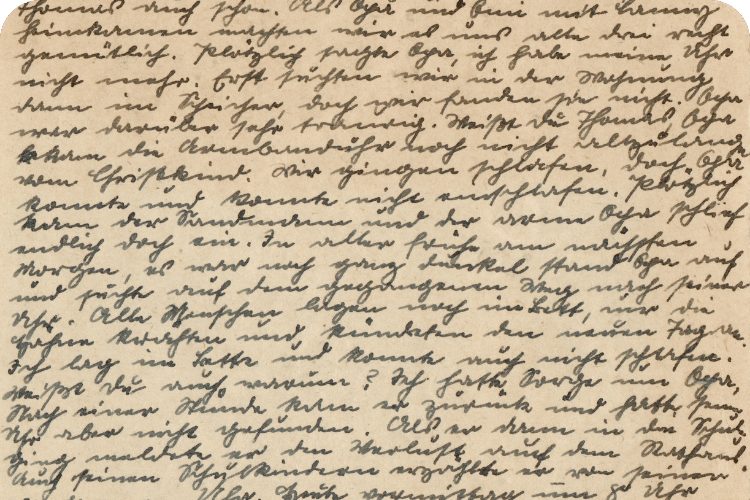 Thomas auch schon. Als Opa und Omi mit Tanny
heimkamen machten wir es uns alle drei recht
gemütlich. Plötzlich sagte Opa, ich habe meine Uhr
nicht mehr. Erst suchten wir in der Wohnung
dann im Speicher, doch wir fanden sie nicht. Opa
war darüber sehr traurig. Weißt du Thomas Opa
bekam die Armbanduhr noch nicht allzulang
vom Christkind. Wir gingen schlafen, doch Opa
konnte und konnte nicht einschlafen. Plötzlich
kam der Sandmann und der arme Opa schlief
endlich doch ein. In aller Frühe am nächsten
Morgen, es war noch ganz dunkel stand Opa auf
und suchte auf dem gegangenen Weg nach seiner
Uhr. Alle Menschen lagen noch im Bett, nur die
Hähne krähten und kündeten den neuen Tag an.
Ich lag im Bette und konnte auch nicht schlafen.
Weißt du auch warum? Ich hatte Sorge um Opa,
Nach einer Stunde kam er zurück und hatte seine
Uhr aber nicht gefunden. Als er dann in die Schule
ging meldete er den Verlust auf dem Rathaus
Auch seinen Schulkindern erzählte er von seiner
Uhr. Heute vormittag um 8 Uhr